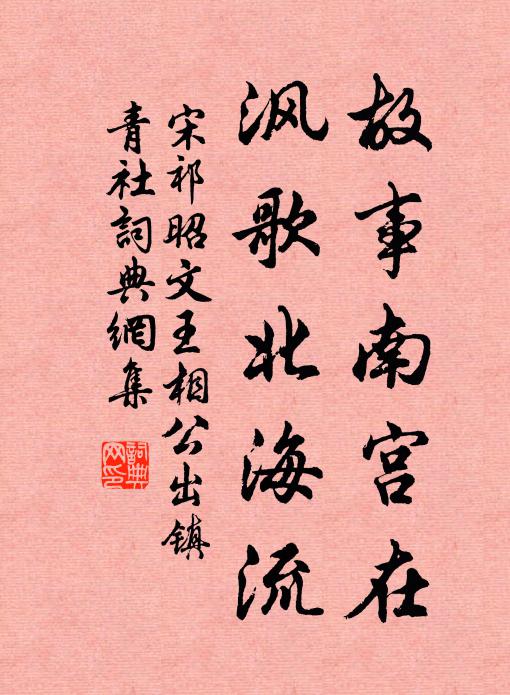 故事南宫在
沨歌北海流
宋祁昭文王相公出镇
青社詞典網集
詞典網印